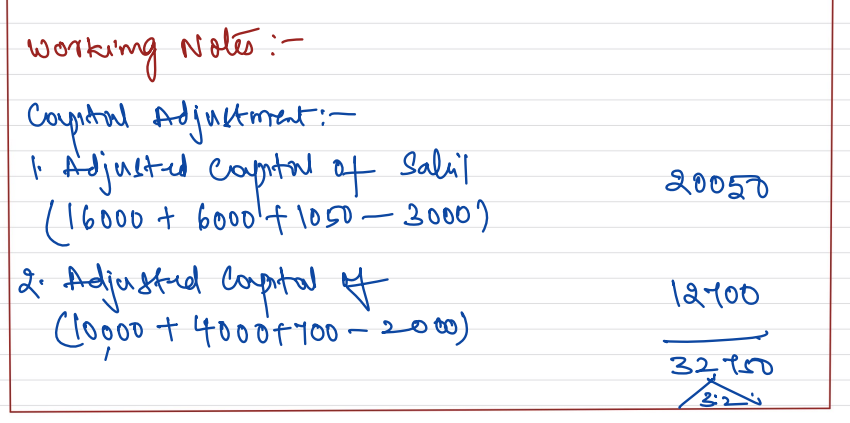 Working Notes:-
Capital Adjustment:-
1. Adjusted Capital of Sahil
20050
(16000 + 6000 + 1050 - 3000)
2. Adjusted Capital of
12700
(10,000 + 4000 + 700 - 2000)
32,750
3:2